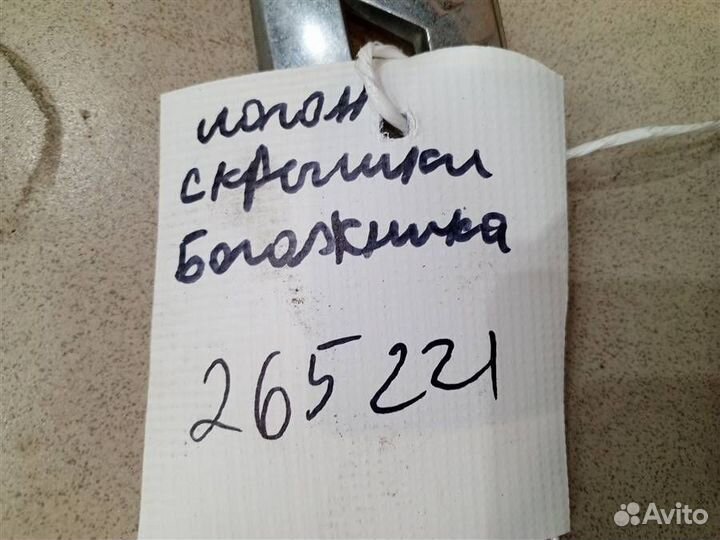 логон
скрышки
богожника
265221
Avito